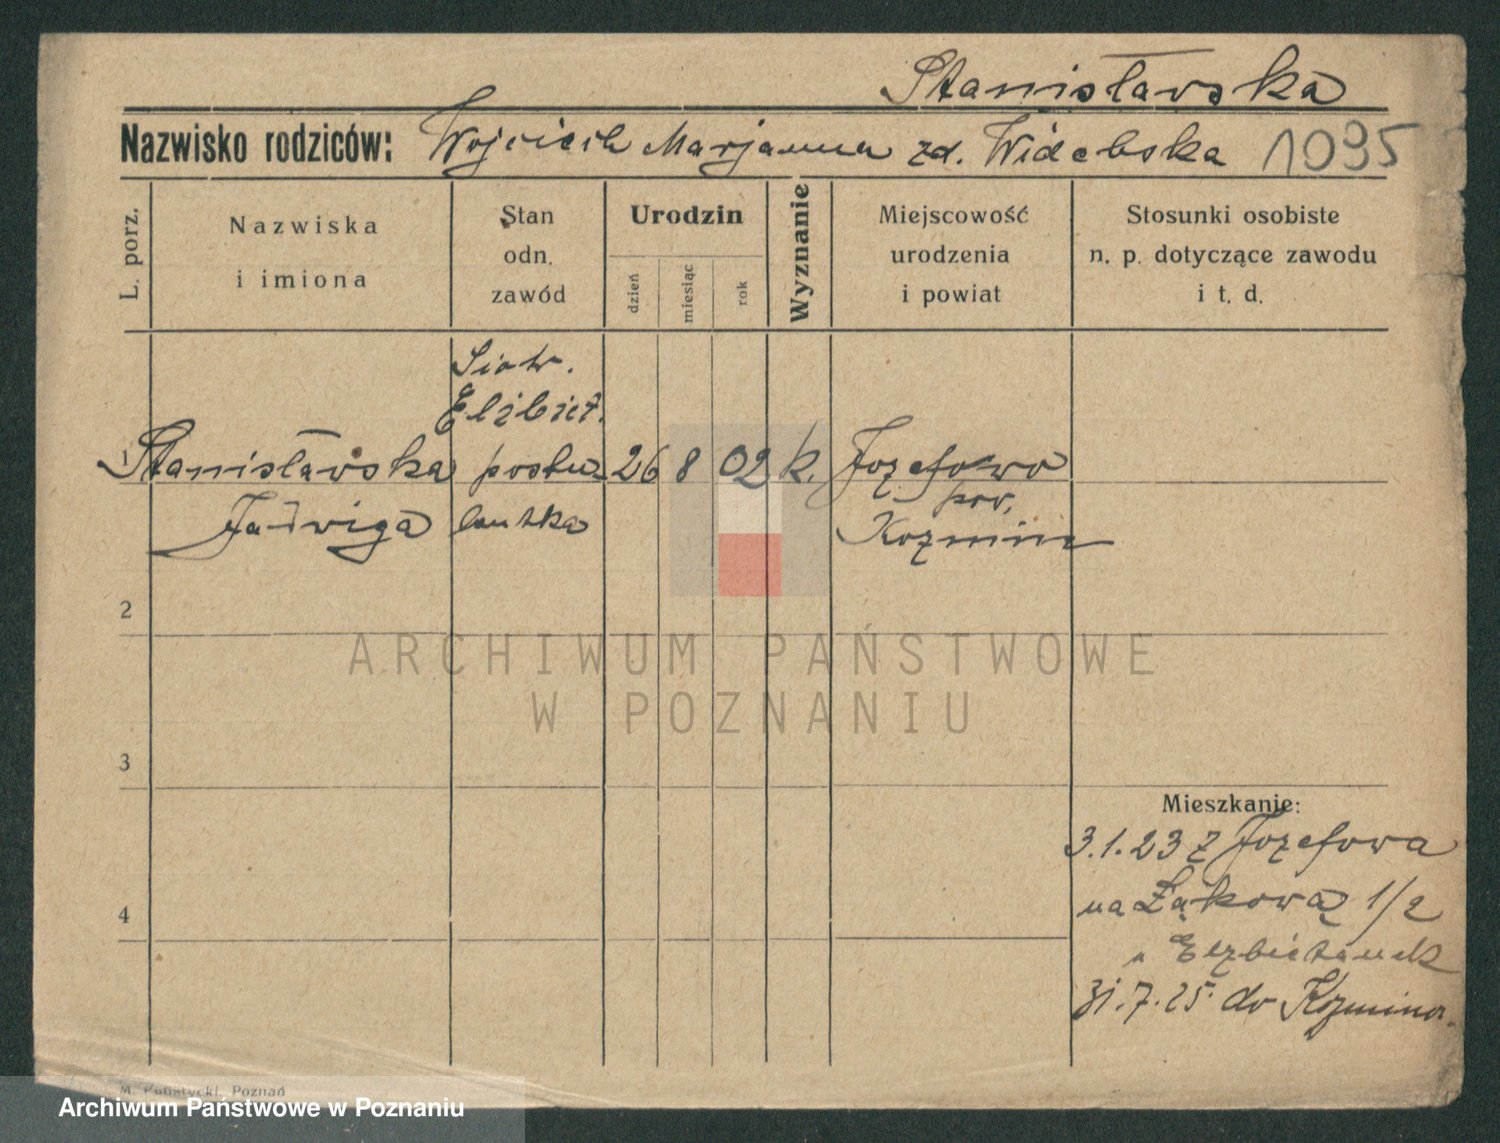 Stanisławska
Nazwisko rodziców: Wojciech Marjanna zd. Widebska 1095
L. porz.
Nazwiska
i imiona
Stan
odn.
zawód
Urodzin
dzień
miesiąc
rok
Wyznanie
Miejscowość
urodzenia
i powiat
Stosunki osobiste
n. p. dotyczące zawodu
i t. d.
Siostr.
Elżbiet.
1 Stanisławska postu- 26 8 02 k. Józefowo
pow.
Jadwiga lantka Kozmin
2
ARCHIWUM PAŃSTWOWE
W POZNANIU
3
Mieszkanie:
3.1.23 z Józefowa
4
na Łąkową 1/2
u Elzbietanek
31.7.25. do Kozmina.
M. Poznań
Archiwum Państwowe w Poznaniu